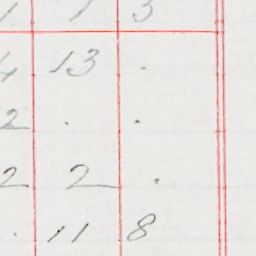 1 1 3
4 13 .
2 . .
2 2 .
. 11 8